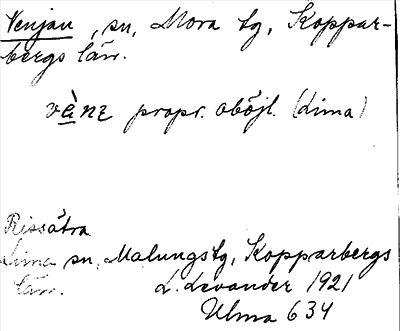 Venjan, sn, Mora tg, Koppar-
bergs län.
vènz propr. oböjl. (Lima)
Rissätra
Lima sn, Malungs tg, Kopparbergs
län.
L. Levander 1921
Ulma 634